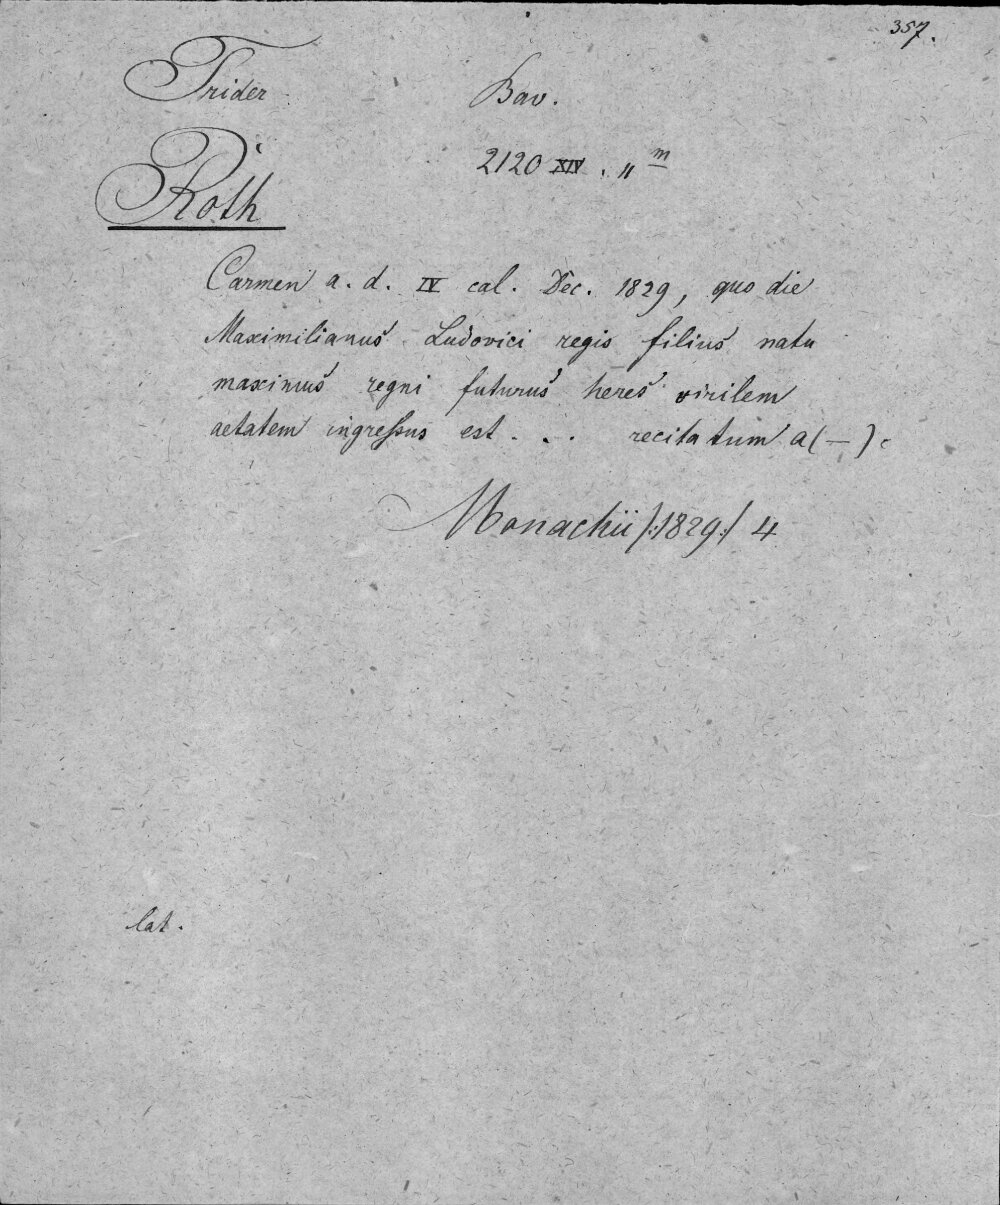 357.
Frider
Bav.
Roth
2120 XIV . „ m
Carmen a. d. IV cal. Dec. 1829, quo die
Maximilianus Ludovici regis filius natu
maximus regni futurus heres virilem
aetatem ingressus est . . . recitatum a (—).
Monachii /:1829:/ 4
lat.